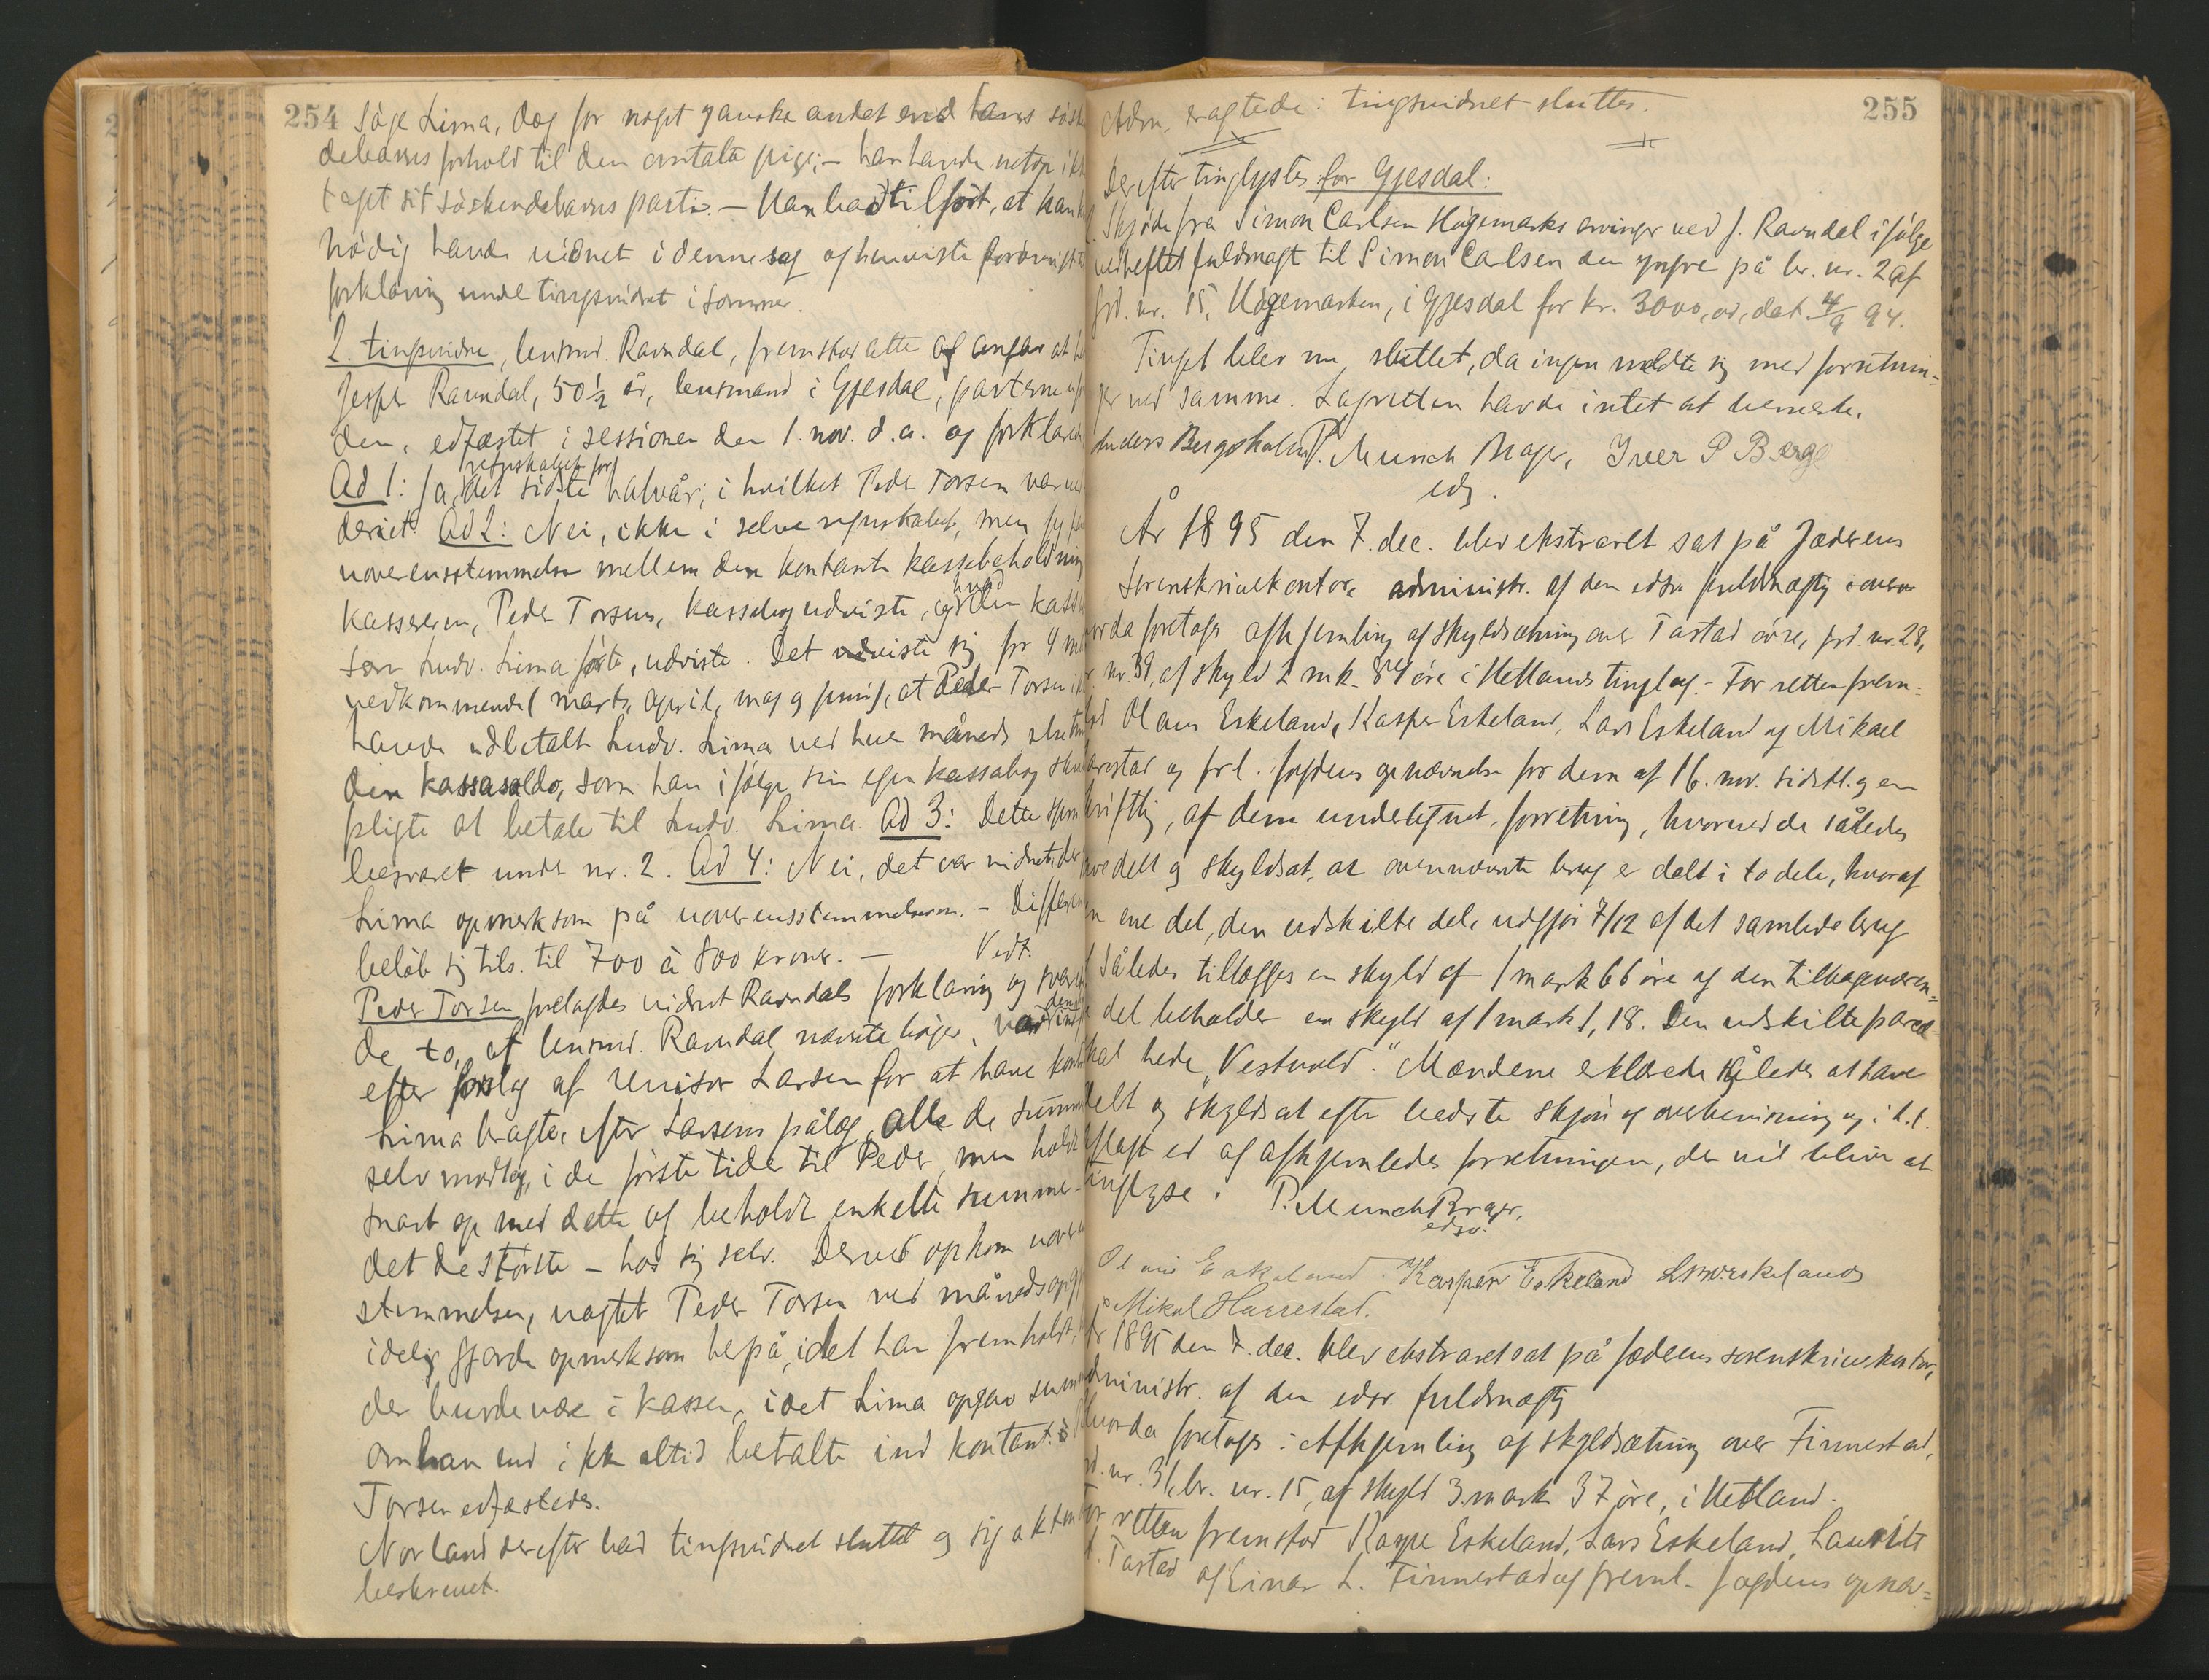 254
søge Lima, dog for noget ganske andet end hans søsken
debarns forhold til den omtalte pige; – han havde netop ikke
taget sit søskendebarns parti. – Han bad tilført, at han
nødig havde vidnet i denne sag og henviste forøvrigt
forklaring under tingsvidnet i sommer.
2. tingsvidne, lensmd. Ravndal, fremstod atter og angav at
Jesper Ravndal, 50½ år, lensmand i Gjesdal, parterne
den, edfæstet i sessionen den 1. nov. d.a. og forklarede
Ad 1: Ja, regnskabet for det sidste halvår, i hvilket Peder Torsen var
deriet. Ad 2: Nei, ikke i selve regnskabet, men
uoverensstemmelse mellem den kontante kassebeholdning
kassereren, Peder Torsens, kassabog udviste, og hvad den kassa
som Ludv. Lima førte, udviste. Det udviste sig for 4
vedkommende (marts, april, maj og juni), at Peder Torsen
havde udbetalt Ludv. Lima ved hver måneds slutning
den kassasaldo, som han ifølge sin egen kassabog
pligtet at betale til Ludv. Lima. Ad 3: Dette
besvaret under nr. 2. Ad 4: Nei, det var vidnet der
Lima opmerksom på uoverensstemmelserne. – Differen
beløb sig tils. til 700 à 800 kroner. – Vedt.
Peder Torsen forelagdes vidnet Ravndals forklaring og
de to, af lensmd. Ravndal nævnte bøger, var
efter forslag af revisor Larsen for at have
Lima bragte, efter Larsens pålæg, alle de
selv modtog, i de første tider til Peder, men holdt
snart op med dette og beholdt enkelte summer –
det de største – hos sig selv. Derved opkom
stemmelsen, uagtet Peder Torsen ved
idelig gjorde opmerksom herpå, idet han fremholdt,
der burde være i kassen, idet Lima opgav
om han end ikke altid betalte ind kontant.
Torsen edfæstedes.
Norland derefter bad tingsvidnet sluttet og sig
beskrevet.
255
Adm. eragtede: tingsvidnet sluttes.
Derefter tinglystes for Gjesdal:
Skjøde fra Simon Carlsen Høgemarks arvinger ved J. Ravndal ifølge
vedheftet fuldmagt til Simon Carlsen den yngre på br. nr. 2 af
grd. nr. 15, Høgemarken, i Gjesdal for kr. 3000,00, dat 4/9 94.
Tinget blev nu sluttet, da ingen meldte sig med forretnin=
ger ved samme. Lagretten havde intet at bemerke.
Anders Bergsholm P. Munch Brager, Iver P Berge
eds.
År 1895 den 7. dec. blev ekstraret sat på Jæderens
sorenskriverkontor, administr. af den edsv. fuldmægtig
hvorda foretoges afhjemling af skyldsætning over Tastad øvre, grd. nr. 28,
br. nr. 39, af skyld 2 mk. 84 øre i Hetlands tinglag. – For retten frem=
stod Olaus Eskeland, Kasper Eskeland, Lars Eskeland og Mikael
Harestad og frl. fogdens opnævnelse for dem af 16. nov. sidstl. og en
skriftlig, af dem undertegnet, forretning, hvorved de således
have delt og skyldsat, at ovennævnte brug er delt i to dele, hvoraf
den ene del, den udskilte del, udgjør 7/12 af det samlede brug
Således tillægges en skyld af 1 mark 66 øre og den tilbageværen=
de del beholder en skyld af 1 mark 1,18. Den udskilte parcel
skal hede „Vestvold." Mændene erklærede således at have
delt og skyldsat efter bedste skjøn og overbevisning og i h.t.
aflagt ed og afhjemledes forretningen, der vil blive at
tinglyse. P. Munch Brager,
edsv.
Olaus Eskeland. Kasper Eskeland Lars Eskeland
Mikal Harrestad.
År 1895 den 7. dec. blev ekstraret sat på Jæderens sorenskriverkontor,
administr. af den edsv. fuldmægtig
hvorda foretoges: Afhjemling af skyldsætning over Finnestad,
grd. nr. 31, br. nr. 15, af skyld 3 mark 37 øre, i Hetland.
For retten fremstod Kasper Eskeland, Lars Eskeland, Laurits
Tastad og Einar L. Finnestad og freml. fogdens opnæv=